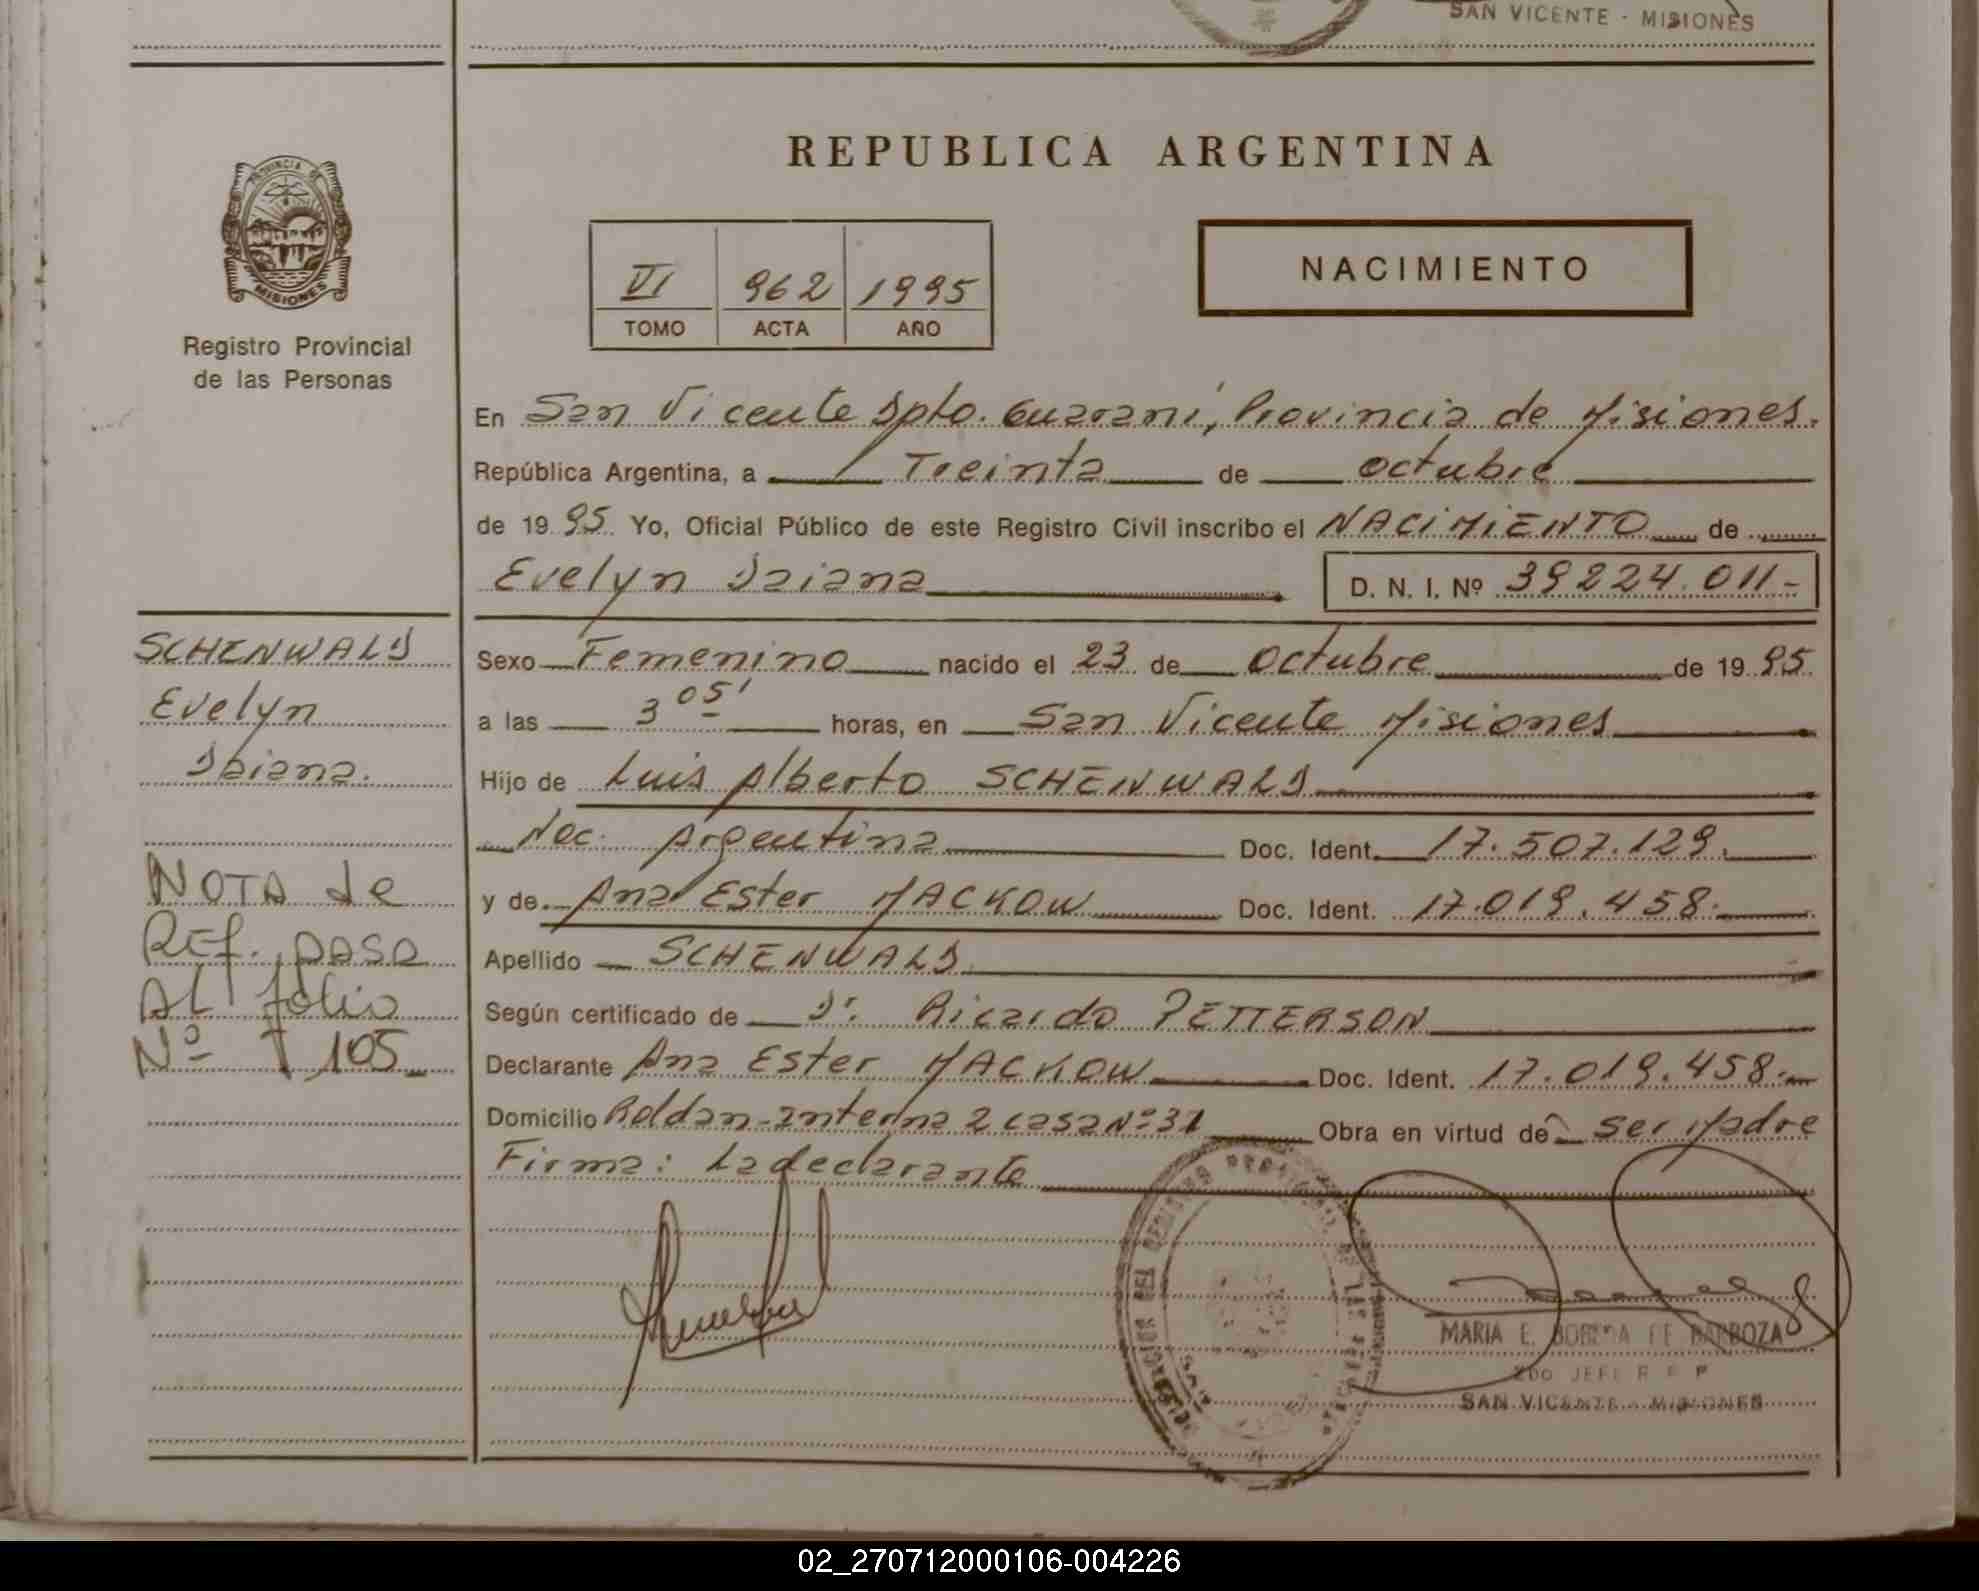 SAN VICENTE - MISIONES
REPUBLICA ARGENTINA
PROVINCIA DE
MISIONES
Registro Provincial
de las Personas
VI 962 1995
TOMO ACTA AÑO
NACIMIENTO
En San Vicente Dpto. Guaraní, Provincia de Misiones.
República Argentina, a Treinta de octubre
de 1995. Yo, Oficial Público de este Registro Civil inscribo el NACIMIENTO de
Evelyn Daiana D. N. I. Nº 39224.011-
SCHENWALD
Evelyn
Daiana.
NOTA de
Ref. pasa
AL folio
Nº 105
Sexo Femenino nacido el 23 de Octubre de 1995.
a las 3 05' horas, en San Vicente Misiones
Hijo de Luis Alberto SCHENWALD
Nac. Argentina Doc. Ident. 17.507.129.
y de Ana Ester MACKOW Doc. Ident. 17.019.458.
Apellido SCHENWALD
Según certificado de Dr. Ricardo PETTERSON
Declarante Ana Ester MACKOW Doc. Ident. 17.019.458.
Domicilio Roldan-interna 2 casa Nº 31 Obra en virtud de ser Madre
Firma: La declarante
MARIA E. DE BARBOZA
2DO JEFE R P P
SAN VICENTE - MISIONES
02_270712000106-004226